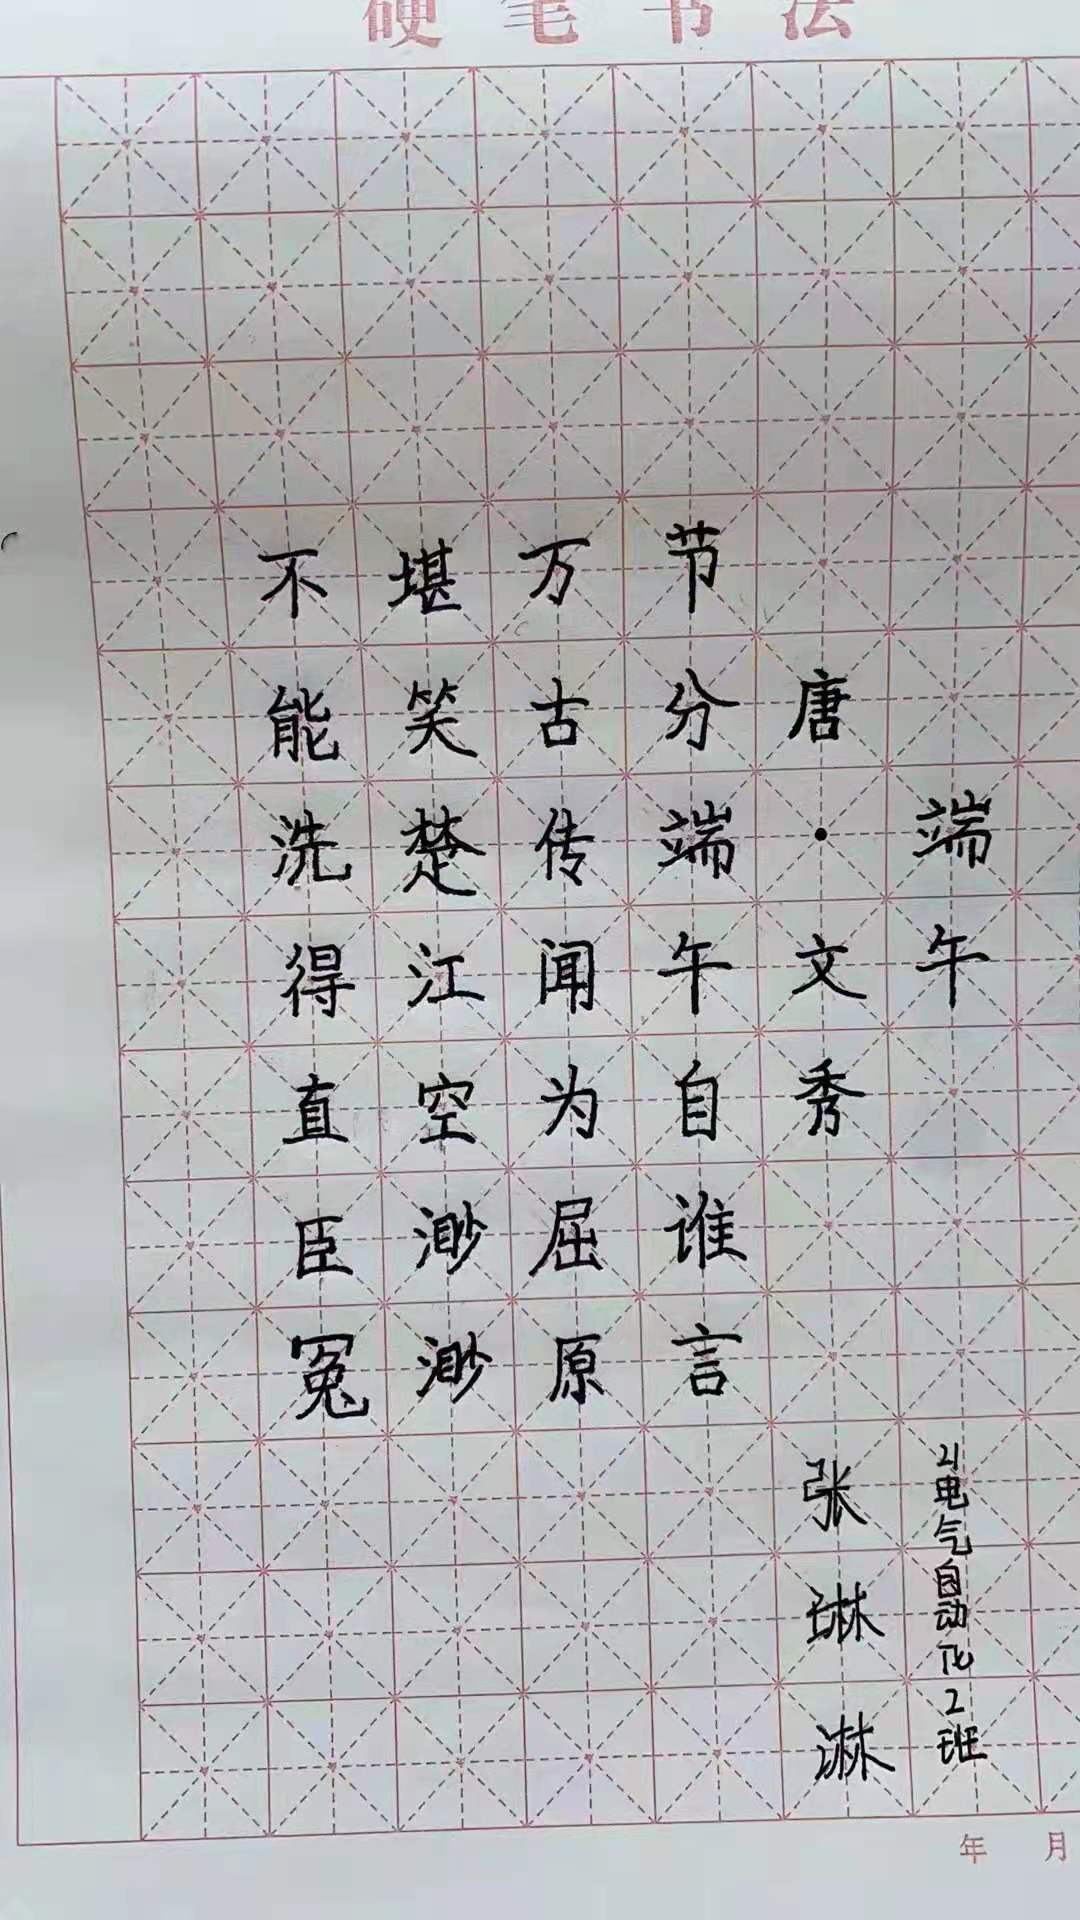 硬笔书法
端午
唐·文秀
节分端午自谁言
万古传闻为屈原
堪笑楚江空渺渺
不能洗得直臣冤
21电气自动化2班
张琳淋
年 月